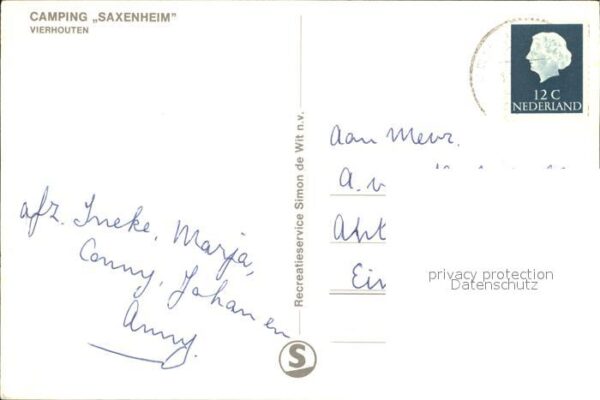 CAMPING „SAXENHEIM"
VIERHOUTEN
afz. Ineke, Marja,
Conny, Johan en
Anny.
Recreatieservice Simon de Wit n.v.
S
12 C
NEDERLAND
Aan Mevr.
A. v
Aht
Ein
privacy protection
Datenschutz